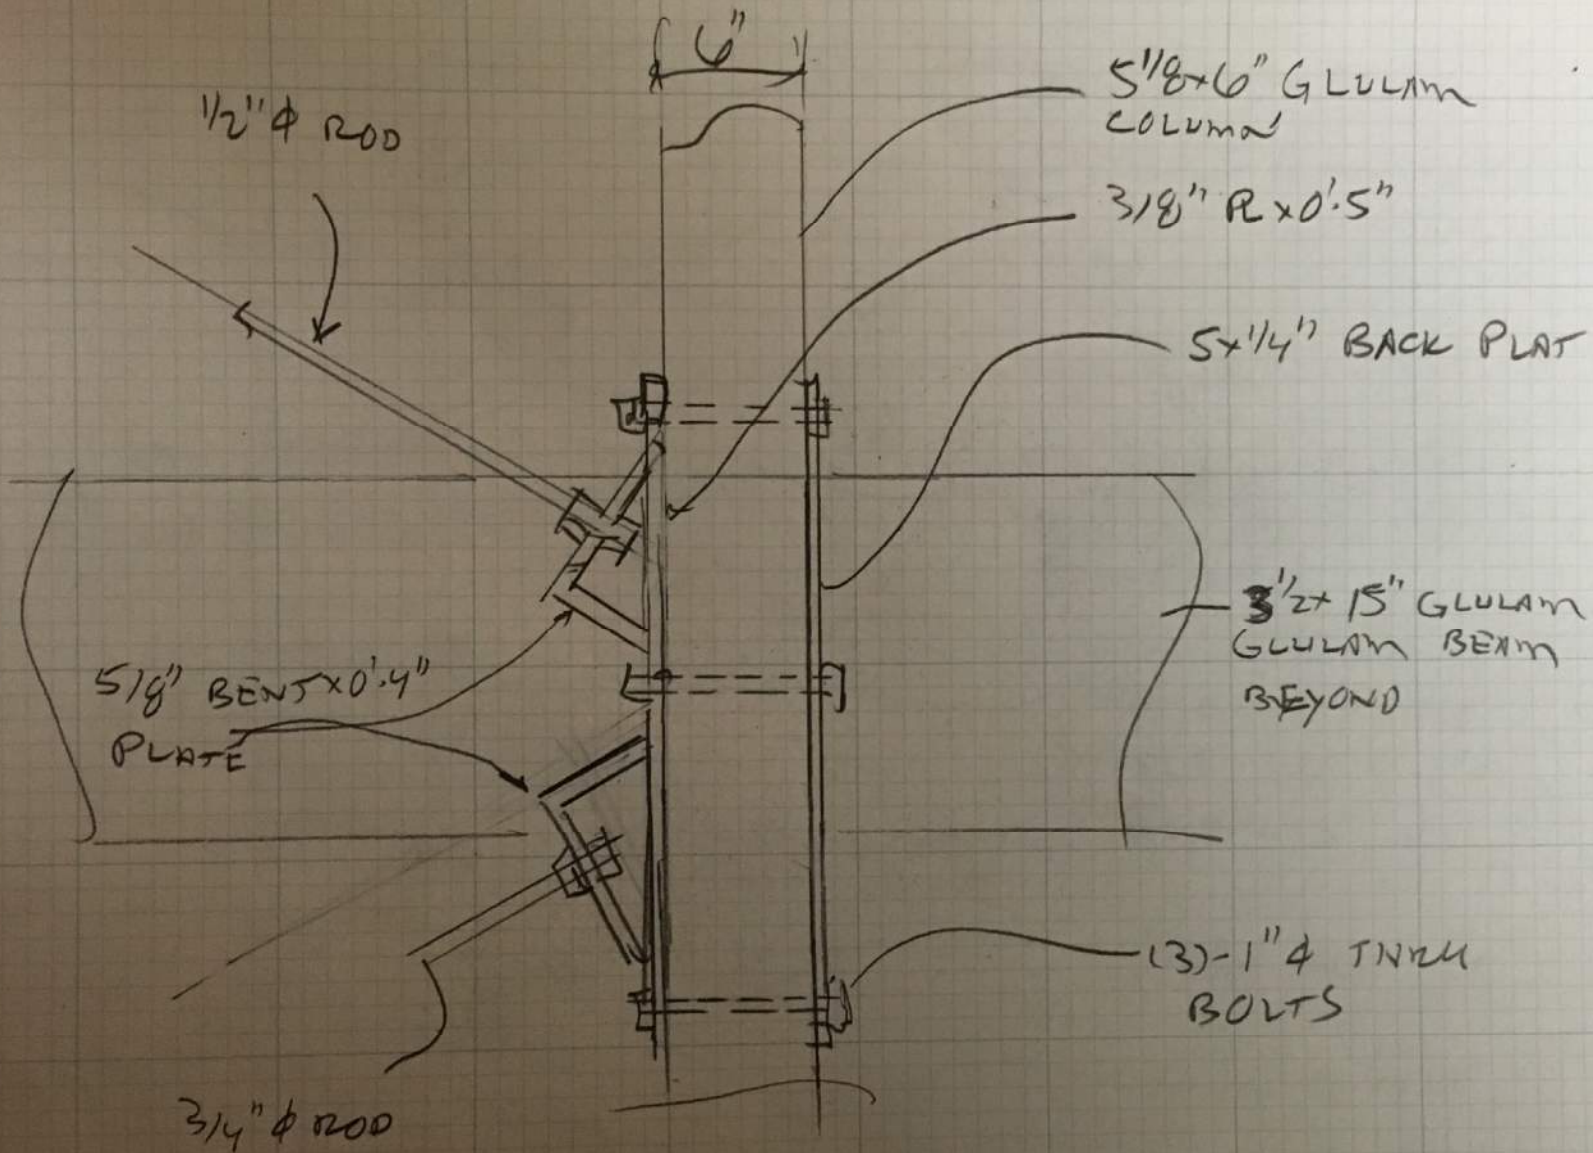 6"
1/2" ϕ ROD
5 1/8 x 6" GLULAM
COLUMN
3/8" PL x 0'.5"
5 x 1/4" BACK PLAT
3 1/2 x 15" GLULAM
GLULAM BEAM
BEYOND
5/8" BENT x 0'.4"
PLATE
(3)-1" ϕ THRU
BOLTS
3/4" ϕ ROD